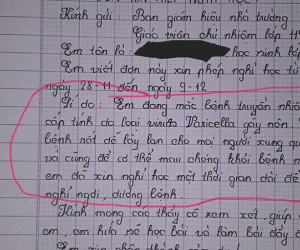 Kính gửi: Ban giám hiệu nhà trường
Giáo viên chủ nhiệm lớp 11
Em tên là: học sinh lớp
Em viết đơn này xin phép nghỉ học từ
ngày 28-11 đến ngày 9-12
Lí do: Em đang mắc bệnh truyền nhiễm
cấp tính do loại virut Varicella gây nên.
bệnh rất dễ lây lan cho mọi người xung qu
và cũng để có thể mau chóng khỏi bệnh n
em đã xin nghỉ học một thời gian dài để
nghỉ ngơi, dưỡng bệnh.
Kính mong các thầy cô xem xét, giúp
em, em hứa sẽ học bài và làm bài đầy